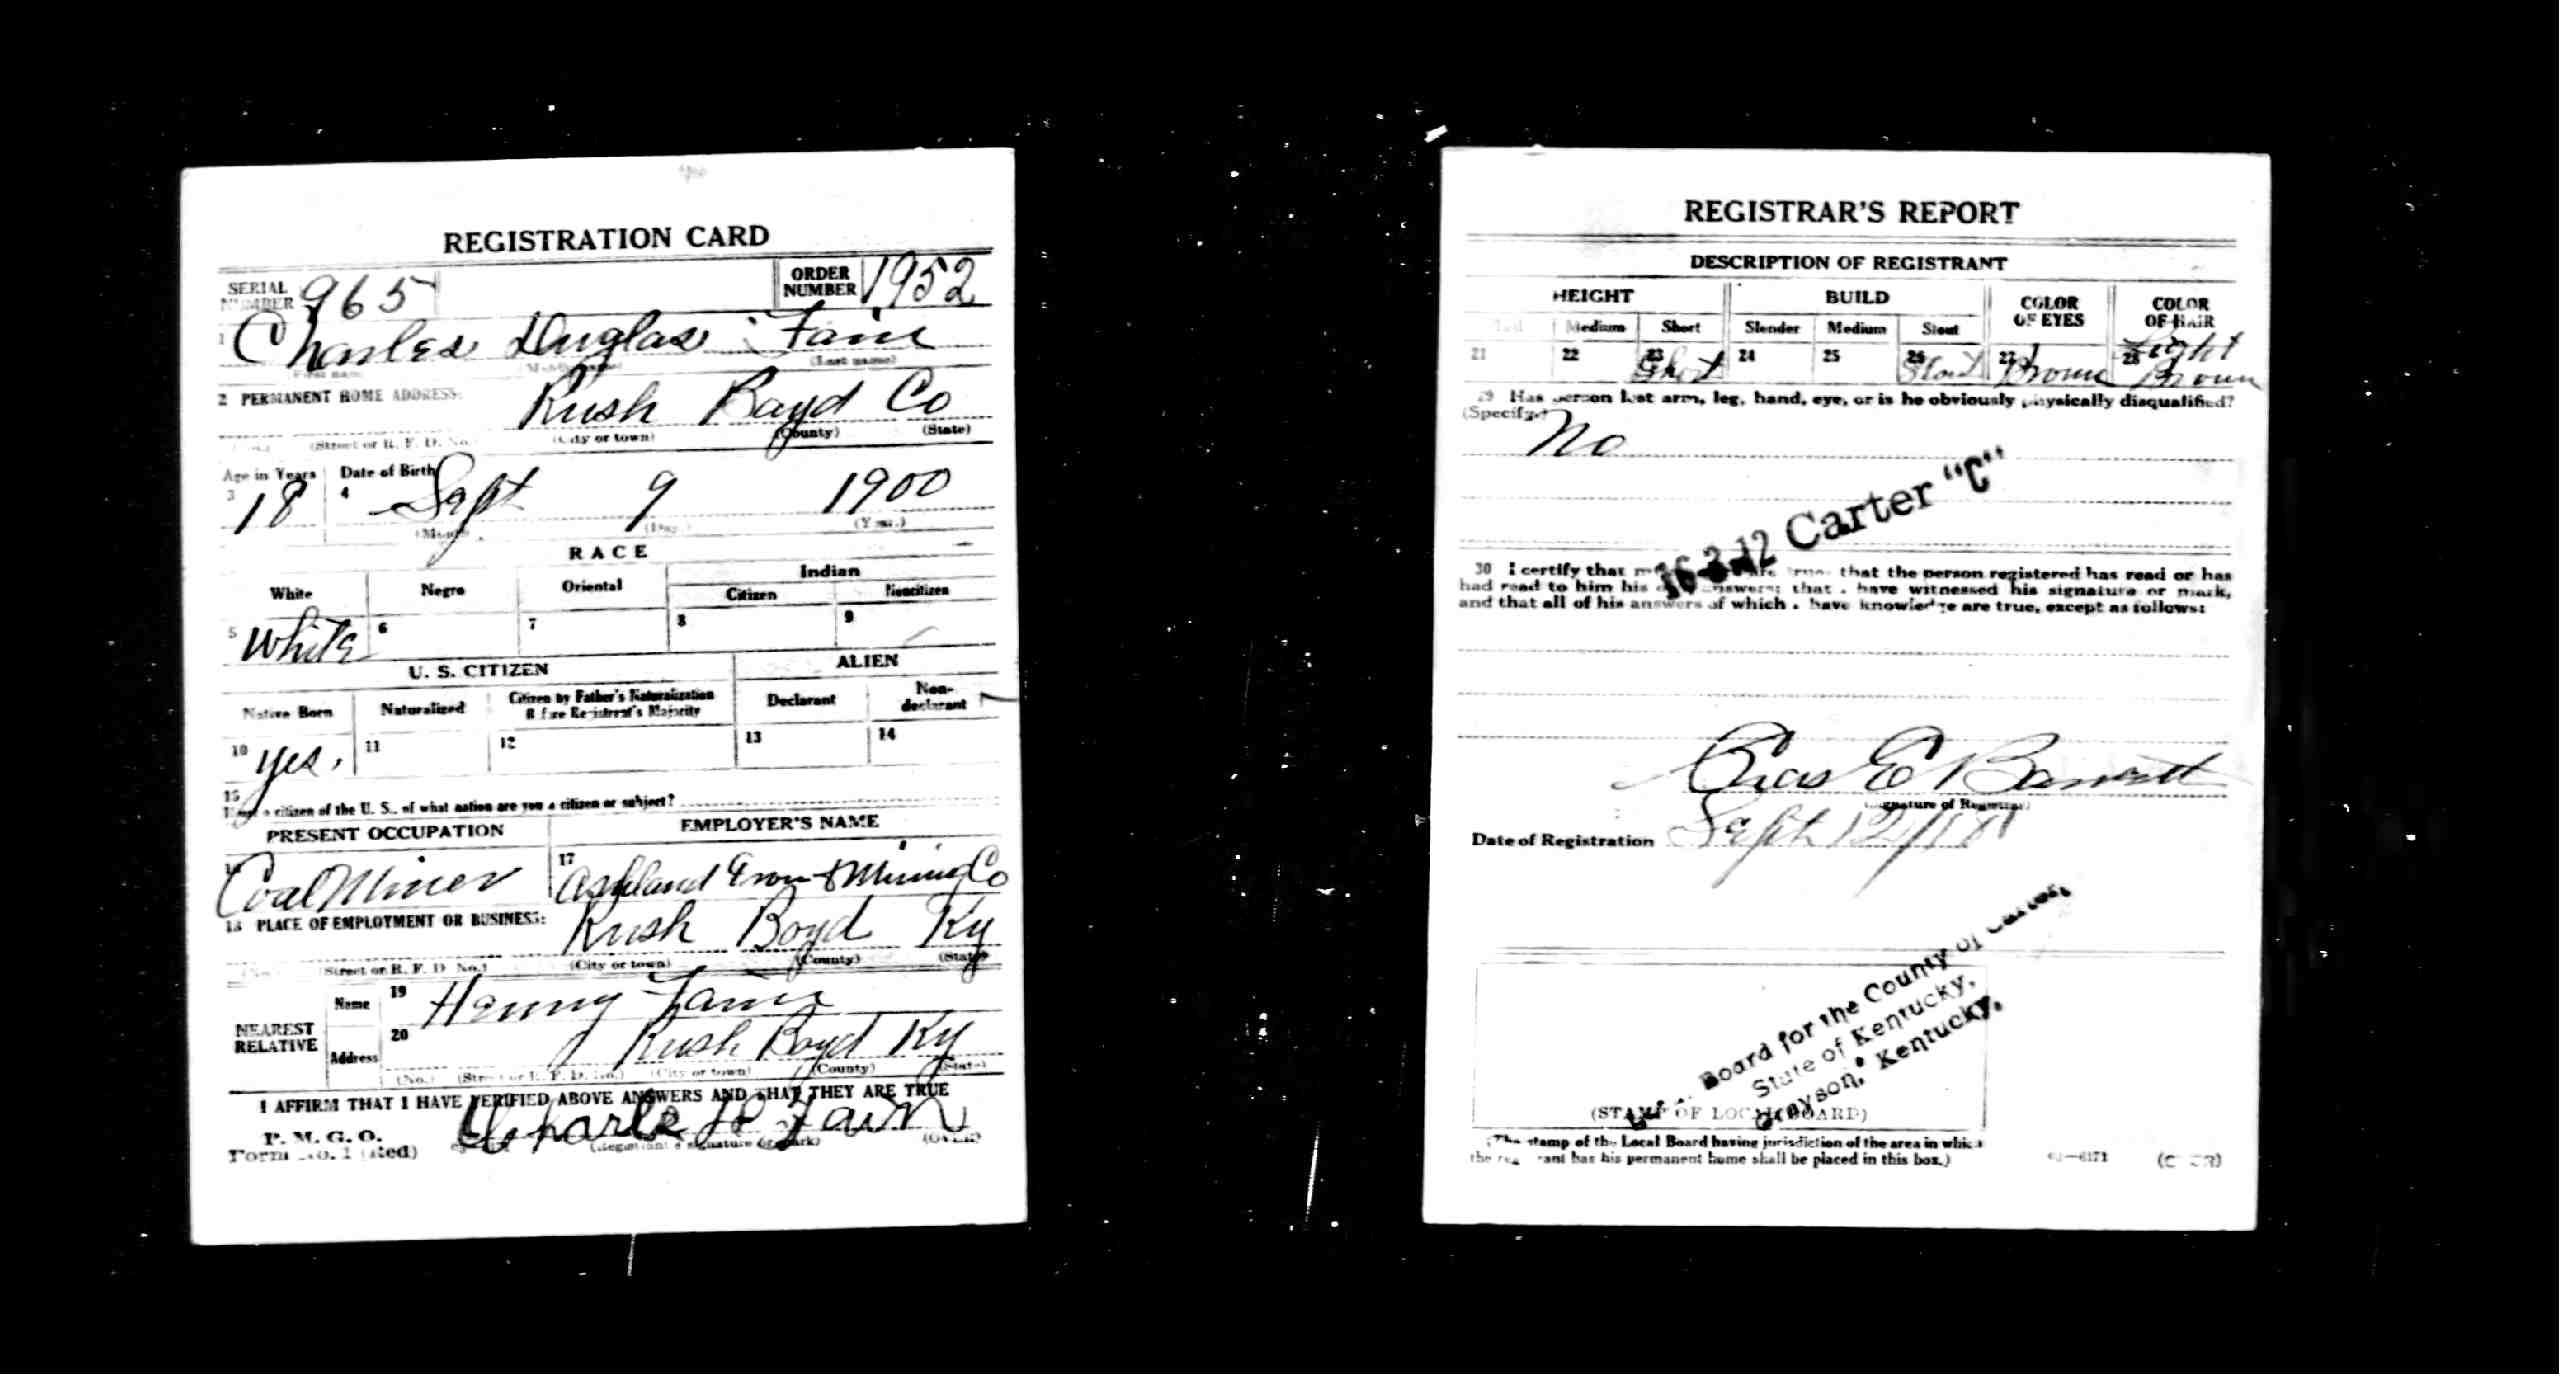 REGISTRATION CARD
SERIAL NUMBER 965 ORDER NUMBER 1952
1 Charles Duglas Fain
(First name) (Middle name) (Last name)
2 PERMANENT HOME ADDRESS:
Rush Boyd Co
(No.) (Street or R. F. D. No.) (City or town) (County) (State)
Age in Years Date of Birth
3 18 4 Sept 9 1900
(Month.) (Day.) (Year.)
RACE
White Negro Oriental Indian
Citizen Noncitizen
5 White 6 7 8 9
U. S. CITIZEN ALIEN
Native Born Naturalized Citizen by Father's Naturalization Before Registrant's Majority Declarant Non-declarant
10 yes. 11 12 13 14
15
If not a citizen of the U. S., of what nation are you a citizen or subject?
PRESENT OCCUPATION EMPLOYER'S NAME
Coal Miner 17 Ashland Iron & Mining Co
18 PLACE OF EMPLOYMENT OR BUSINESS:
Rush Boyd Ky
(No.) (Street or R. F. D. No.) (City or town) (County) (State)
NEAREST RELATIVE
Name 19 Henry Fain
Address 20 Rush Boyd Ky
(No.) (Street or R. F. D. No.) (City or town) (County) (State)
I AFFIRM THAT I HAVE VERIFIED ABOVE ANSWERS AND THAT THEY ARE TRUE
P. M. G. O.
Form No. 1 (Red)
Charle D Fain
(Registrant's signature or mark) (OVER)
REGISTRAR'S REPORT
DESCRIPTION OF REGISTRANT
HEIGHT BUILD COLOR OF EYES COLOR OF HAIR
Tall Medium Short Slender Medium Stout
21 22 23 Short 24 25 26 Stout 27 Brown 28 Light Brown
29 Has person lost arm, leg, hand, eye, or is he obviously physically disqualified?
(Specify.)
No
16-3-12 Carter "C"
30 I certify that my are true, that the person registered has read or has
had read to him his answers; that I have witnessed his signature or mark,
and that all of his answers of which I have knowledge are true, except as follows:
Chas E Barrett
(Signature of Registrar)
Date of Registration Sept 12/18
Board for the County of Carter,
State of Kentucky,
Grayson, Kentucky.
(STAMP OF LOCAL BOARD)
(The stamp of the Local Board having jurisdiction of the area in which
the registrant has his permanent home shall be placed in this box.)
(OVER)